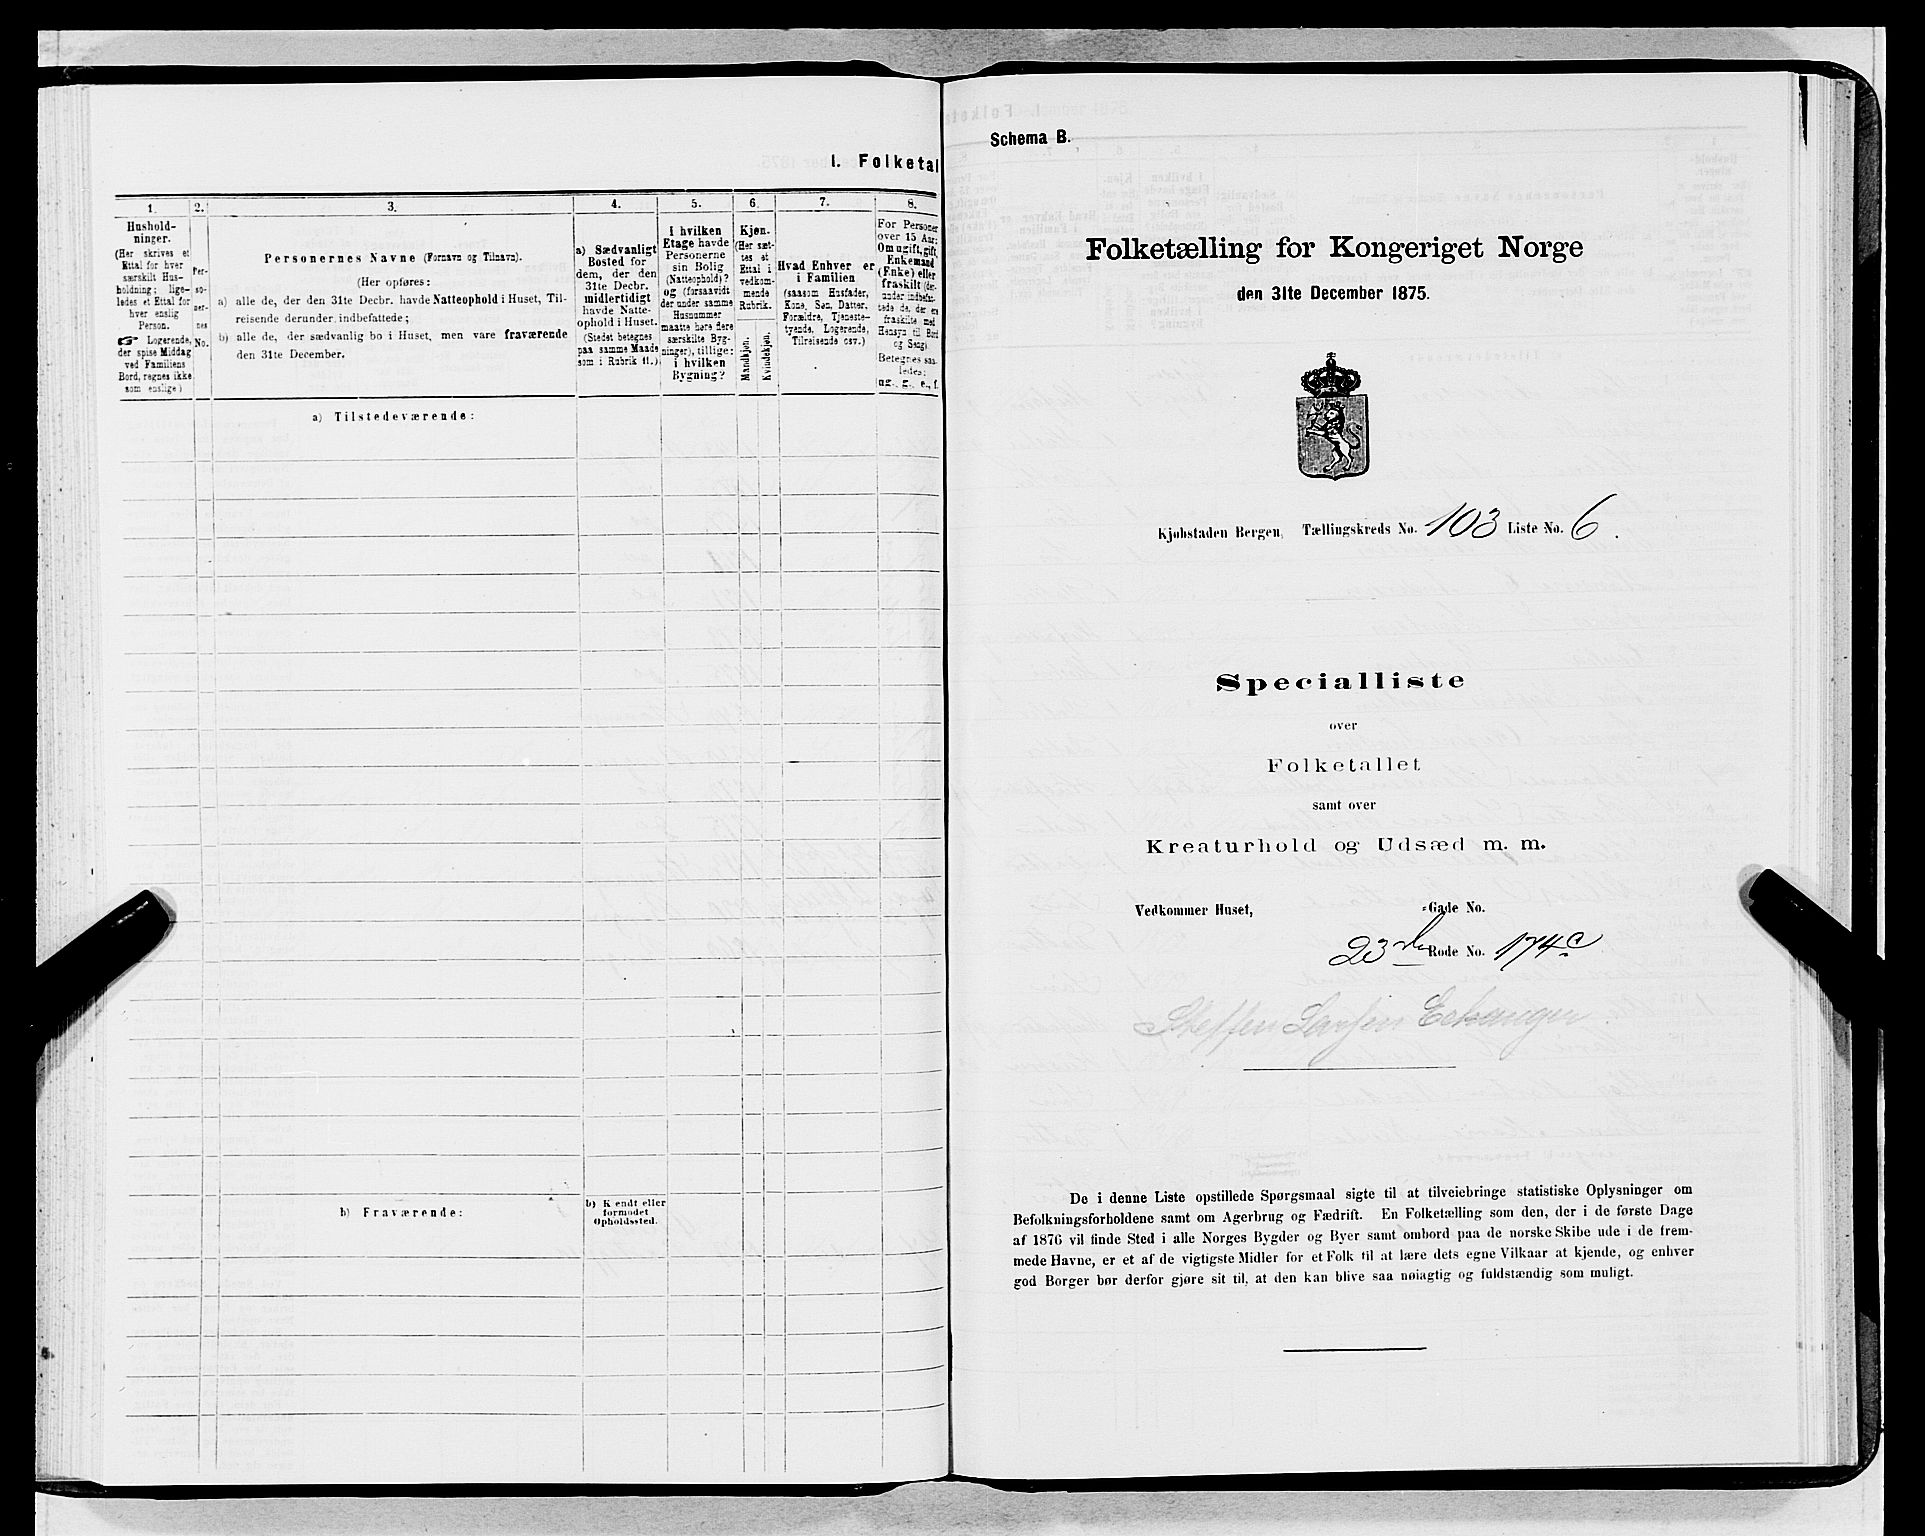 I. Folketal
1. 2. 3. 4. 5. 6. 7. 8.
Hushold-
ninger.
(Her skrives et
Ettal for hver
særskilt Hus-
holdning; lige-
ledes et Ettal for
hver enslig
Person.
☞ Logerende,
der spise Middag
ved Familiens
Bord, regnes ikke
som enslige.)
Per-
so-
ner-
nes
No.
Personernes Navne (Fornavn og Tilnavn).
(Her opføres:
a) alle de, der den 31te Decbr. havde Natteophold i Huset, Til-
reisende derunder indbefattede;
b) alle de, der sædvanlig bo i Huset, men vare fraværende
den 31te December.
a) Sædvanligt
Bosted for
dem, der den
31te Decbr.
midlertidigt
havde Natte-
ophold i Huset.
(Stedet betegnes
paa samme Maade
som i Rubrik 11.)
I hvilken
Etage havde
Personerne
sin Bolig
(Natteophold)?
og (forsaavidt
der under samme
Husnummer
maatte høre flere
særskilte Byg-
ninger), tillige:
i hvilken
Bygning?
Kjøn.
(Her sæt-
tes et
Ettal i
vedkom-
mende
Rubrik.
Mandkjøn.
Kvindekjøn.
Hvad Enhver er
i Familien
(saasom Husfader,
Kone, Søn, Datter,
Forældre, Tjeneste-
tyende, Logerende,
Tilreisende osv.)
For Personer
over 15 Aar:
Om ugift, gift,
Enkemand
(Enke) eller
fraskilt (der-
under indbefat-
tede de, der ere
fraskilte med
Hensyn til Bord
og Seng)
Betegnes saa-
ledes:
ug., g., e., f.
a) Tilstedeværende:
b) Fraværende:
b) Kjendt eller
formodet
Opholdssted.
Schema B.
Folketælling for Kongeriget Norge
den 31te December 1875.
Kjøbstaden Bergen, Tællingskreds No. 103 Liste No. 6.
Specialliste
over
Folketallet
samt over
Kreaturhold og Udsæd m. m.
Vedkommer Huset, -Gade No.
23de Rode No. 174c
Steffen Larsen Eckanger.
De i denne Liste opstillede Spørgsmaal sigte til at tilveiebringe statistiske Oplysninger om
Befolkningsforholdene samt om Agerbrug og Fædrift. En Folketælling som den, der i de første Dage
af 1876 vil finde Sted i alle Norges Bygder og Byer samt ombord paa de norske Skibe ude i de frem-
mede Havne, er et af de vigtigste Midler for et Folk til at lære dets egne Vilkaar at kjende, og enhver
god Borger bør derfor gjøre sit til, at den kan blive saa nøiagtig og fuldstændig som muligt.